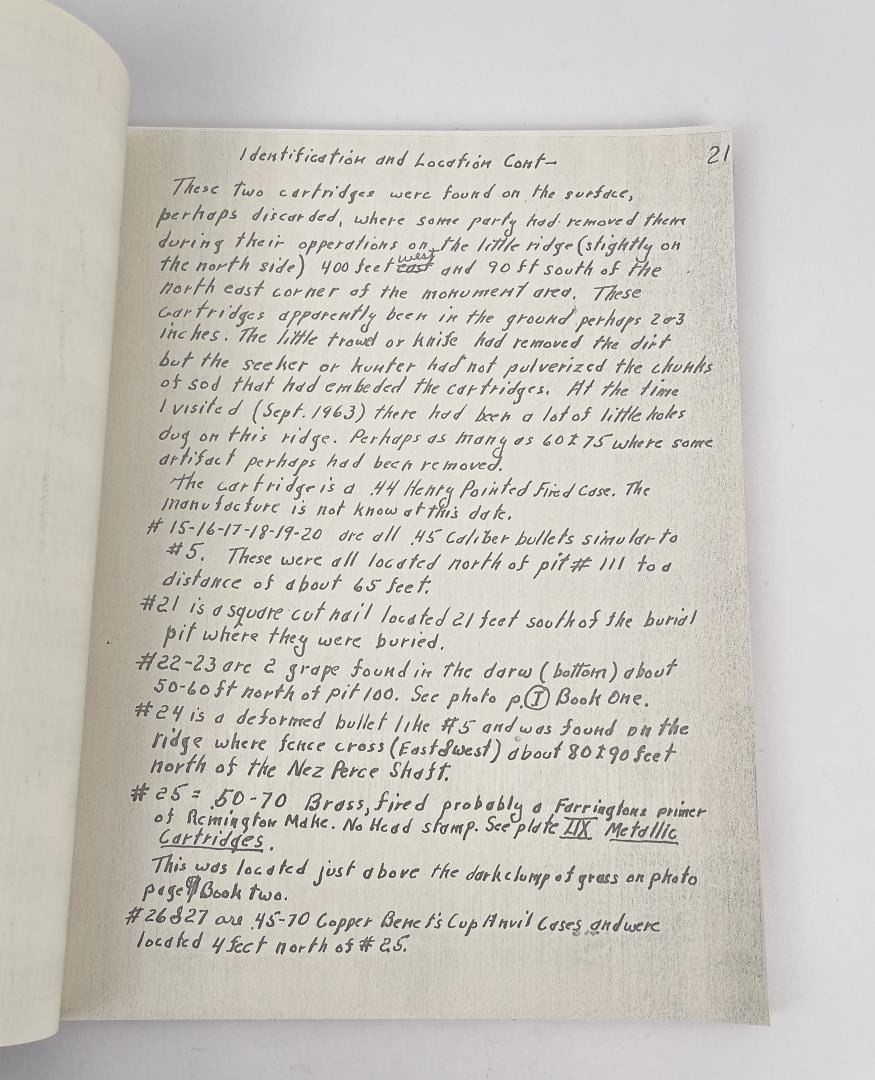 Identification and Location Cont-
21
These two cartridges were found on the surface,
perhaps discarded, where some party had removed them
during their opperations on the little ridge (slightly on
the north side) 400 feet west and 90 ft south of the
north east corner of the monument area. These
cartridges apparently been in the ground perhaps 2or3
inches. The little trowel or knife had removed the dirt
but the seeker or hunter had not pulverized the chunks
of sod that had embeded the cartridges. At the time
I visited (Sept. 1963) there had been a lot of little holes
dug on this ridge. Perhaps as many as 60 & 75 where some
artifact perhaps had been removed.
The cartridge is a .44 Henry Pointed Fired Case. The
manufacture is not know at this date.
# 15-16-17-18-19-20 are all .45 Caliber bullets simular to
#5. These were all located north of pit # 111 to a
distance of about 65 feet.
#21 is a square cut nail located 21 feet south of the burial
pit where they were buried.
#22-23 are 2 grape found in the darw (bottom) about
50-60 ft north of pit 100. See photo p. I Book One.
#24 is a deformed bullet like #5 and was found on the
ridge where fence cross (East & West) about 80 & 90 feet
north of the Nez Perce Shaft.
#25 = .50-70 Brass, fired probably a Farringtons primer
of Remington Make. No Head stamp. See plate IIX Metallic
Cartridges.
This was located just above the dark clump of grass on photo
page Book two.
#26&27 are .45-70 Copper Benet's Cup Anvil Cases and were
located 4 feet north of #25.